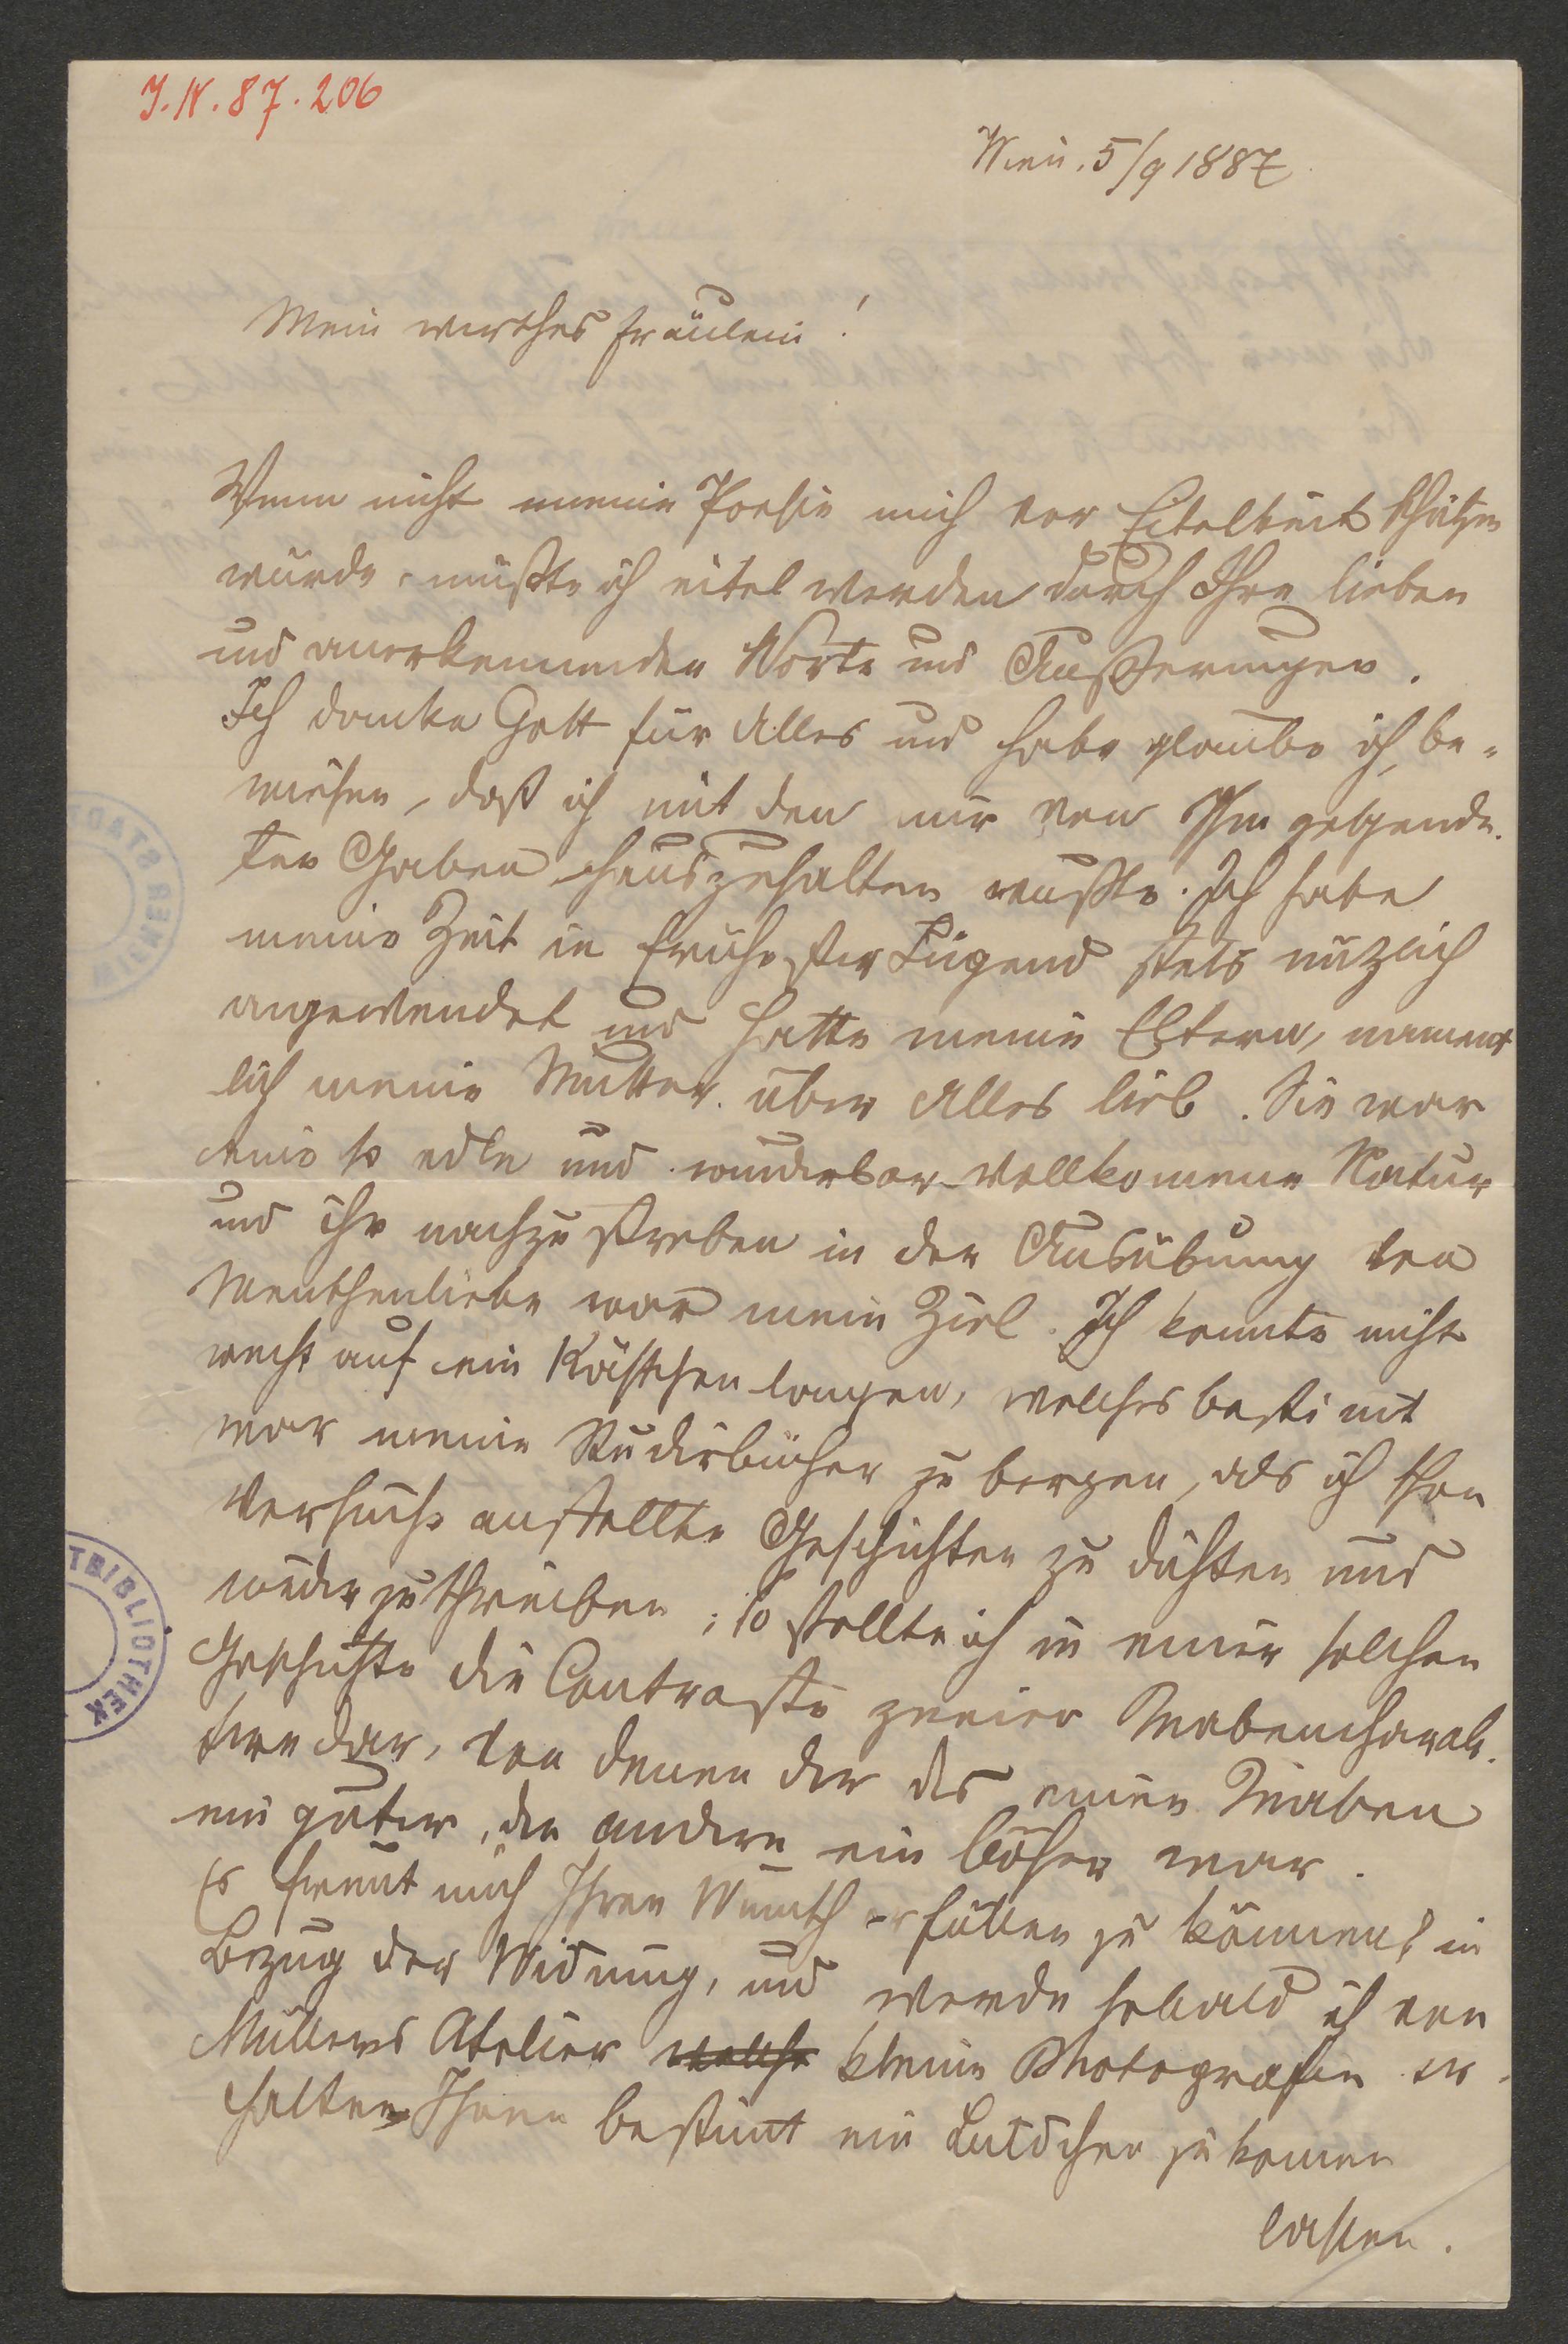 J.N. 87.206
Wien. 5/9 1887
Mein werthes Fräulein!
Wenn nicht meine Poesie mich vor Eitelkeit schützen
würde, müßte ich eitel werden durch Ihre lieben
und anerkennenden Worte und Äußerungen.
Ich danke Gott für Alles und habe glaube ich, be-
wiesen, daß ich mit den mir von Ihm gespende-
ten Gaben hauszuhalten wußte. Ich habe
meine Zeit in frühester Jugend stets nüzlich
angewendet und hatte meine Eltern, nament
lich meine Mutter über Alles lieb. Sie war
eine so edle und wunderbar vollkomene Natur
und ihr nachzustreben in der Ausübung von
Menschenliebe war mein Ziel. Ich konnte nicht
recht auf ein Kästchen langen, welches bestimt
war meine Studirbücher zu bergen, als ich schon
Versuche anstellte Geschichten zu dichten und
niederzuschreiben; so stellte ich in einer solchen
Geschichte die Contraste zweier Knabencharak-
tere dar, von denen der des einen Knaben
ein guter, der andere ein böser war.
Es freut mich Ihren Wunsch erfüllen zu können, in
Bezug der Widmung, und werde sobald ich von
Müllers Atelier welche kleine Photografien er-
halten Ihnen bestimt ein Bildchen zukomen
lassen.
TBIBLIOTHEK